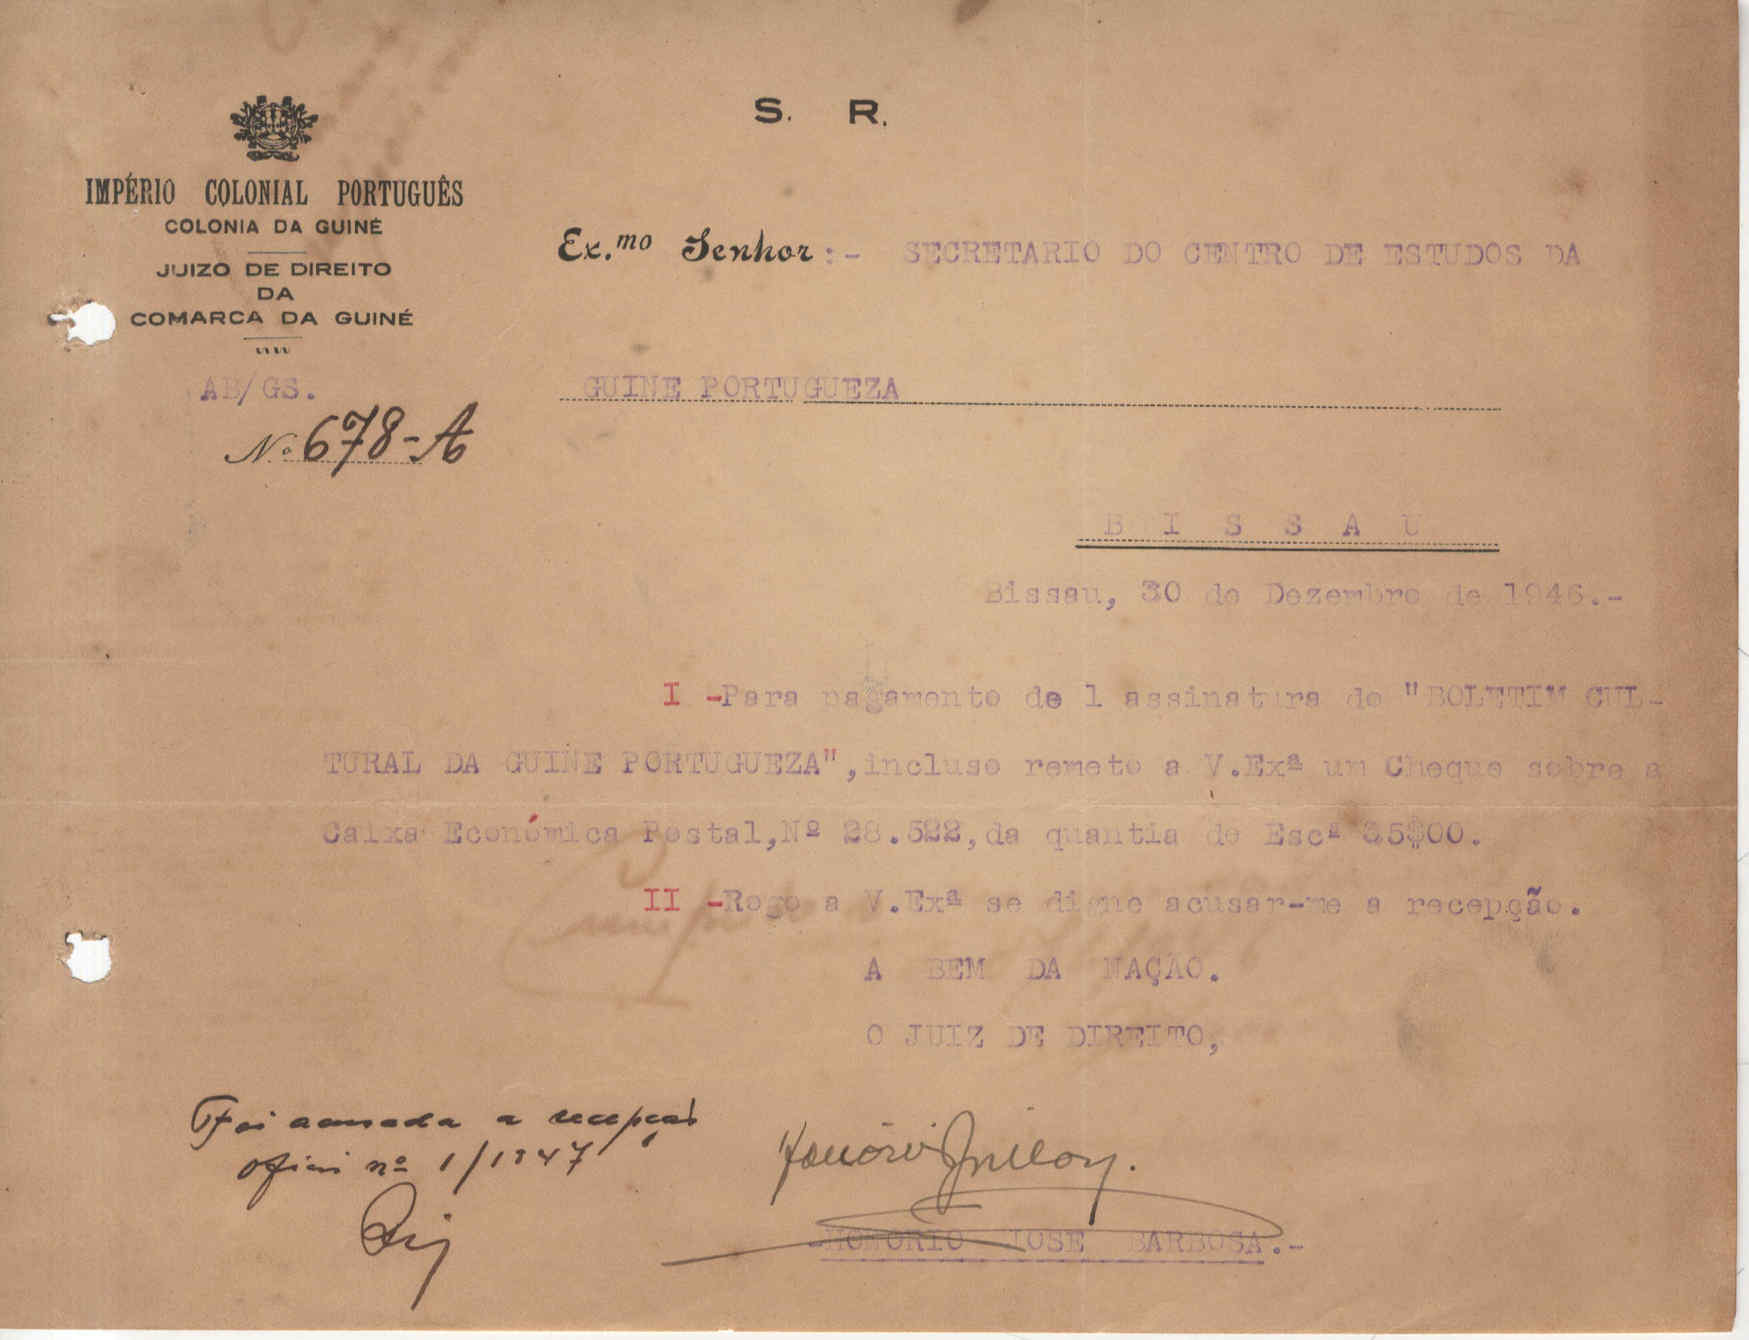 S. R.
IMPÉRIO COLONIAL PORTUGUÊS
COLONIA DA GUINÉ
JUIZO DE DIREITO
DA
COMARCA DA GUINÉ
AB/GS.
Nº 678-A
Ex.mo Senhor:- SECRETARIO DO CENTRO DE ESTUDOS DA
GUINE PORTUGUEZA
B I S S A U
Bissau, 30 de Dezembro de 1946.-
I -Para pagamento de 1 assinatura do "BOLETIM CUL-
TURAL DA GUINE PORTUGUEZA", incluso remeto a V.Exª um Cheque sobre a
Caixa Económica Postal, Nº 28.522, da quantia de Escª 35$00.
II -Rogo a V.Exª se digne acusar-me a recepção.
A BEM DA NAÇÃO.
O JUIZ DE DIREITO,
Foi acusada a recepção
ofício nº 1/1947
-HONORIO JOSE BARBOSA.-